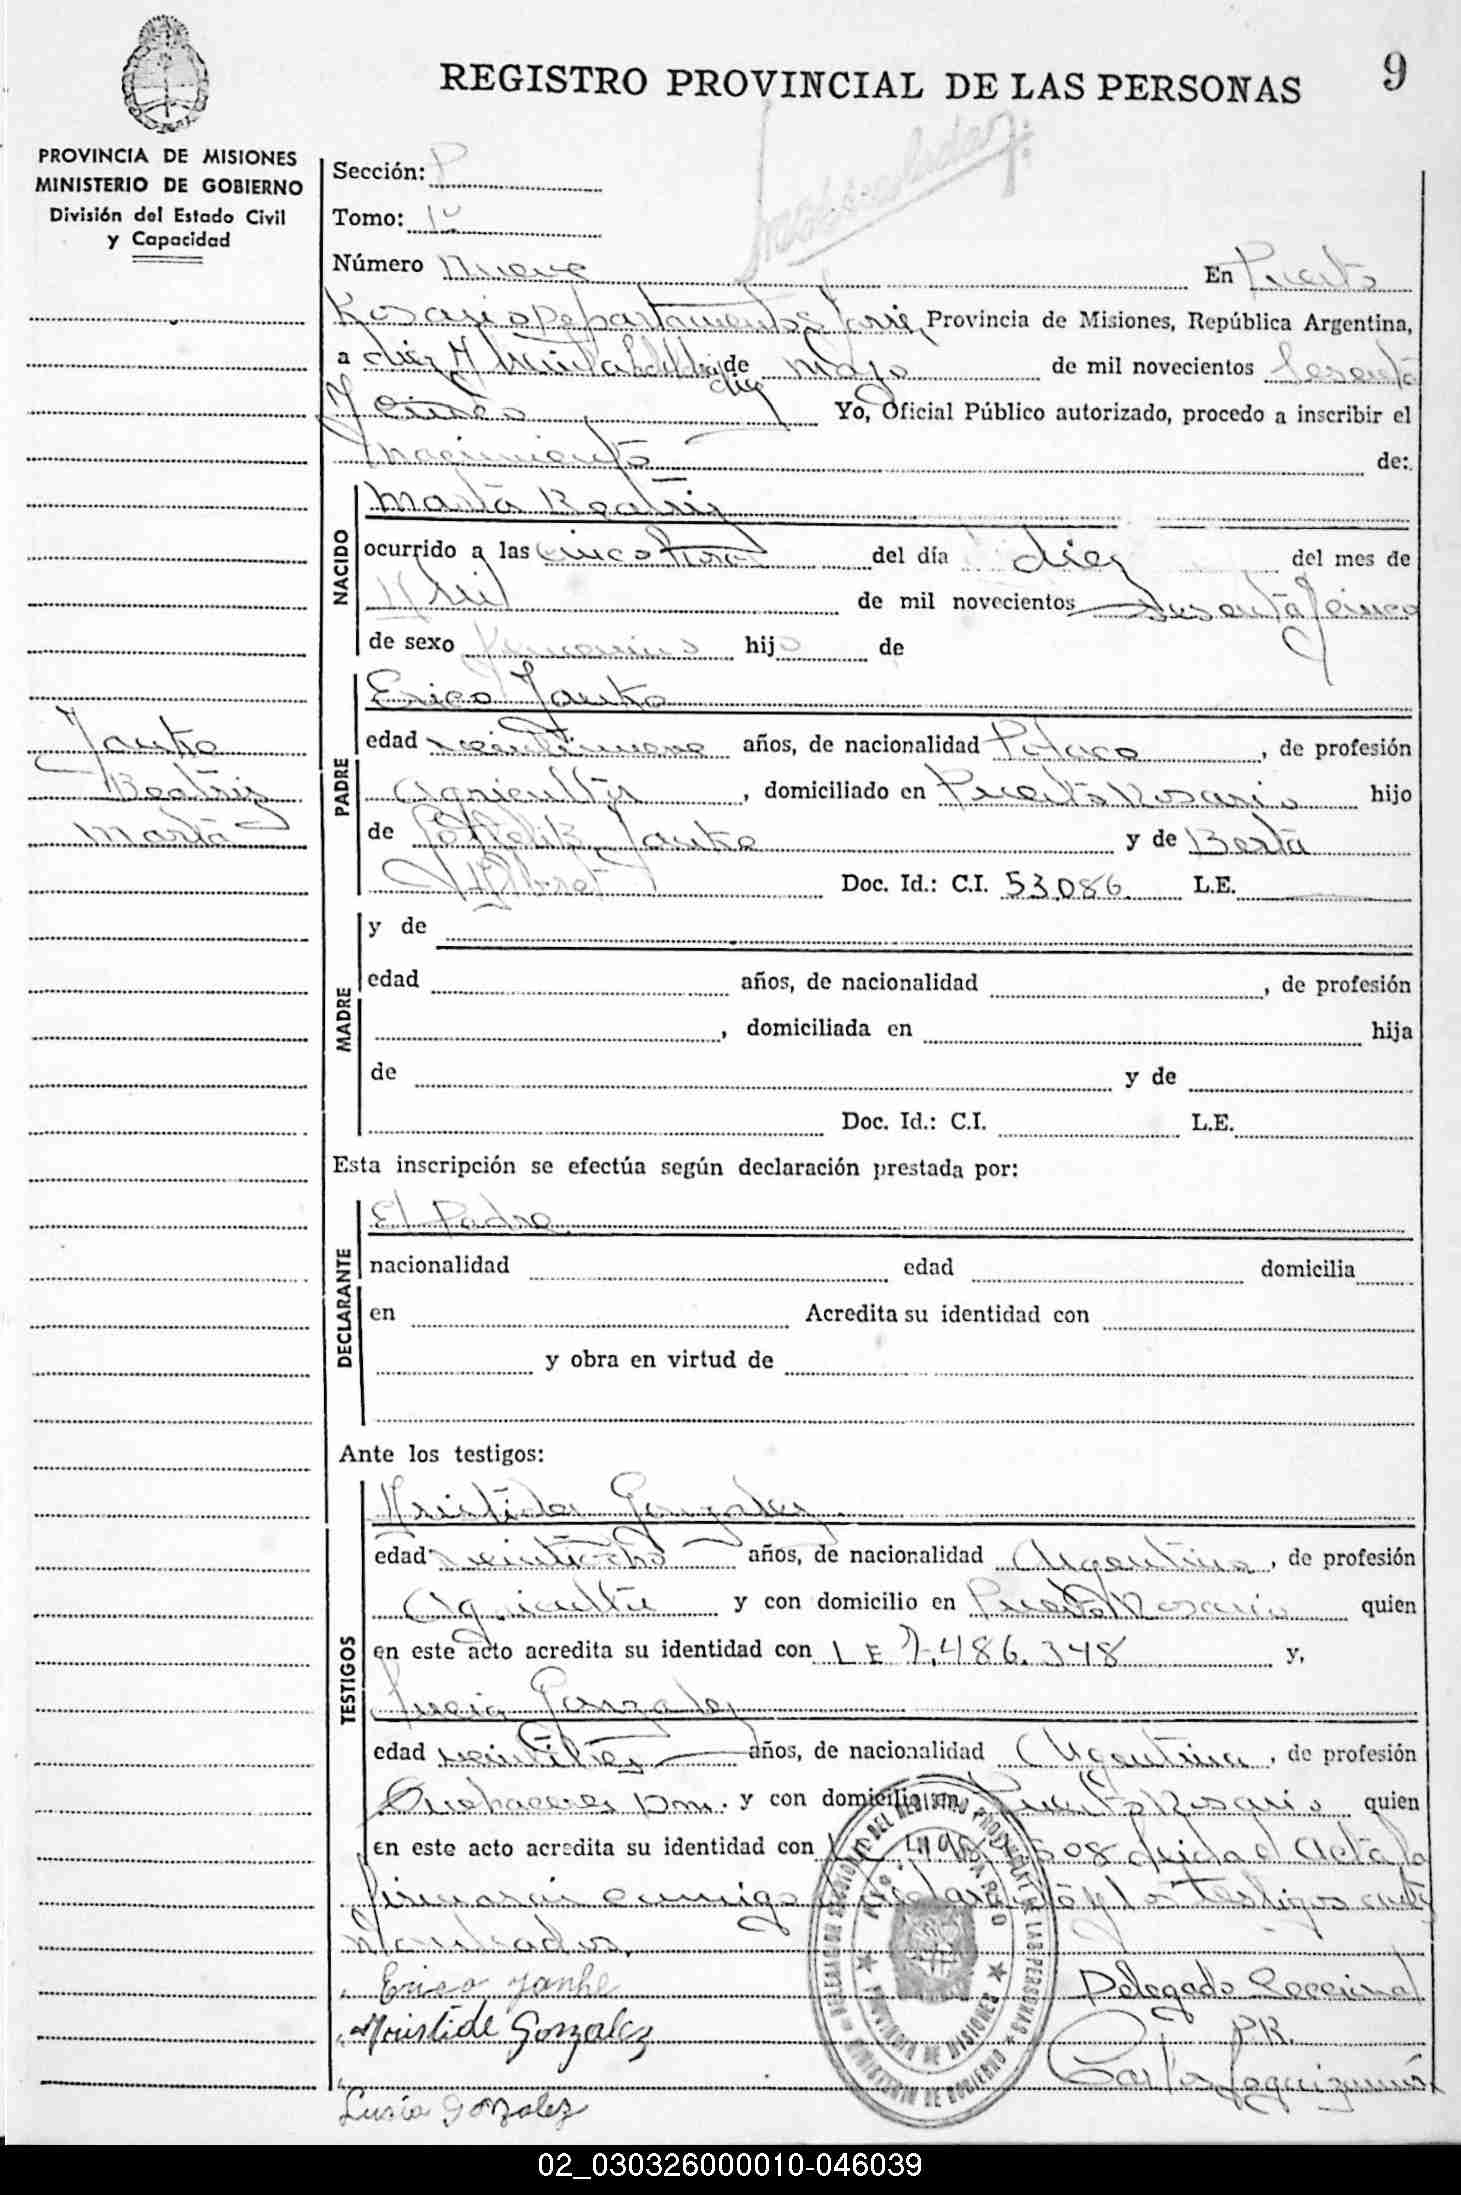 REGISTRO PROVINCIAL DE LAS PERSONAS 9
PROVINCIA DE MISIONES
MINISTERIO DE GOBIERNO
División del Estado Civil
y Capacidad
Sección: P
Tomo: 1º
Número Nueve En Puerto
Rosario Departamento Provincia de Misiones, República Argentina,
a diez y de Mayo de mil novecientos Sesenta
y Cinco Yo, Oficial Público autorizado, procedo a inscribir el
Nacimiento de:
NACIDO
Marta Beatriz
ocurrido a las Cinco horas del día diez del mes de
Abril de mil novecientos Sesenta y cinco
de sexo Femenino hij de
PADRE
Erico Janke
edad veintinueve años, de nacionalidad Polaco, de profesión
Agricultor, domiciliado en Puerto Rosario hijo
de Janke y de Berta
Doc. Id.: C.I. 53.086 L.E.
Janke
Beatriz
Marta
MADRE
y de
edad años, de nacionalidad , de profesión
, domiciliada en hija
de y de
Doc. Id.: C.I. L.E.
Esta inscripción se efectúa según declaración prestada por:
DECLARANTE
El Padre
nacionalidad edad domicilia
en Acredita su identidad con
y obra en virtud de
Ante los testigos:
TESTIGOS
Aristides Gonzalez
edad veintiocho años, de nacionalidad Argentino, de profesión
Agricultor y con domicilio en Puerto Rosario quien
en este acto acredita su identidad con L E 7.486.348 y,
Lucia Gonzalez
edad veintitres años, de nacionalidad Argentina, de profesión
Quehaceres Dom. y con domicilio en Puerto Rosario quien
en este acto acredita su identidad con 508 leida el Acta la
firmaron conmigo los testigos
Erico Janke
Aristide Gonzalez
Lusia Gonzalez
Delegado Seccional
P.R.
Carlos
PROVINCIA DE MISIONES
MINISTERIO DE GOBIERNO
02_030326000010-046039